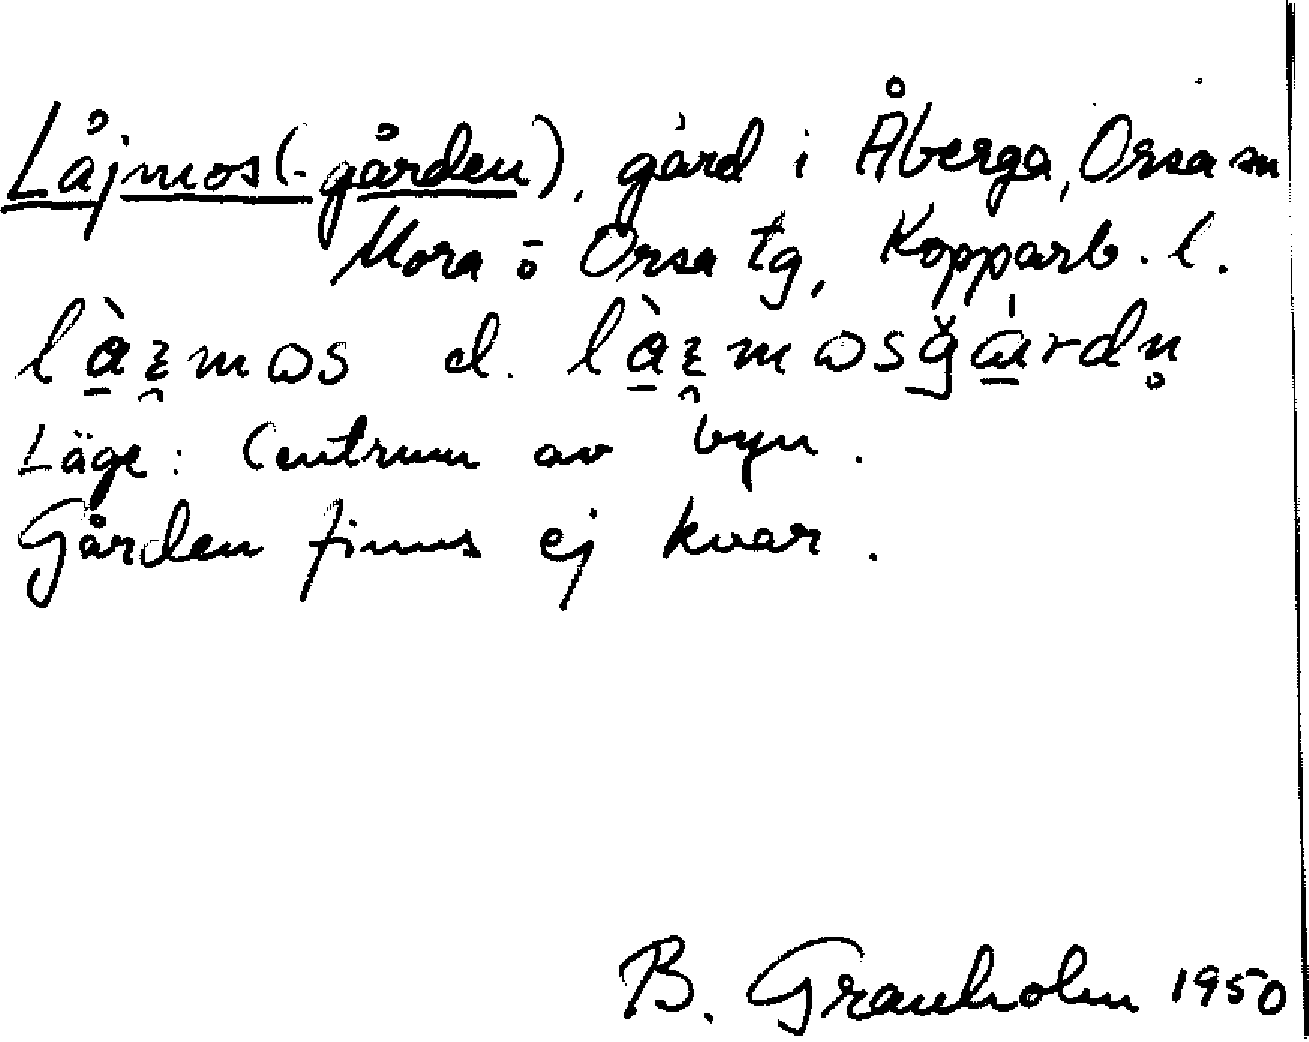 Låjmos(-gården), gård i Åberga, Orsa sn
Mora o Orsa tg, Kopparb. l.
el.
Läge: Centrum av byn.
Gården finns ej kvar.
B. Granholm 1950